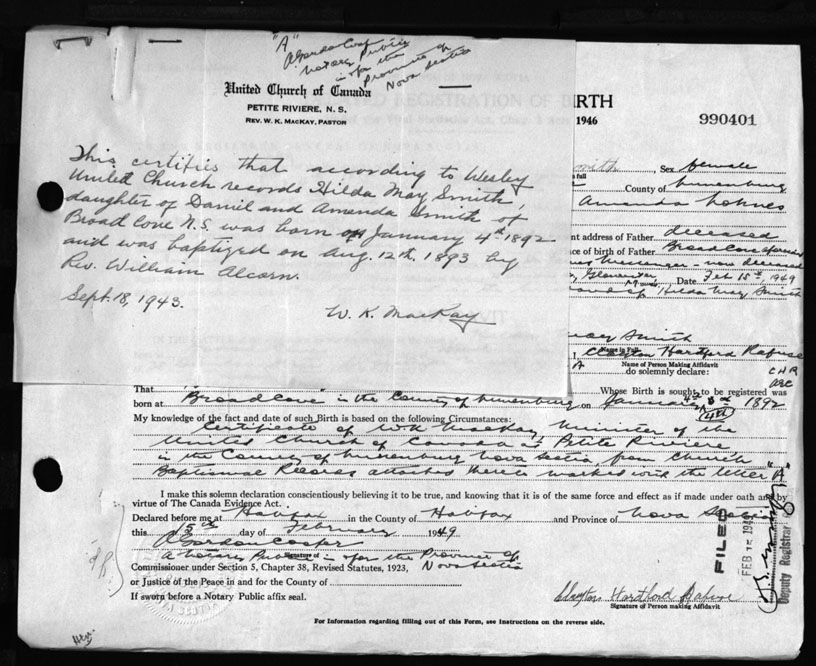 "A"
A Gordon Cooper
Notary Public
in & for the
Province of
Nova Scotia
United Church of Canada
PETITE RIVIERE, N. S.
REV. W. K. MACKAY, PASTOR
This certifies that according to Wesley
United Church records Hilda May Smith,
daughter of Daniel and Amanda Smith of
Broad Cove N.S. was born on January 4th 1892
and was baptized on Aug. 12th, 1893 by
Rev. William Alcorn.
Sept. 18, 1943.
W. K. MacKay
IRTH
1946
990401
Smith Sex Female
County of Lunenburg
Amanda Lohnes
nt address of Father deceased
ce of birth of Father Broad Cove
Messenger - now deceased
Gloucester Date Feb 15th, 1949
Hilda May Smith
Smith
Name in Full
Clayton Hartford
Name of Person Making Affidavit
A
do solemnly declare:
CHR
AGC
That
Whose Birth is sought to be registered was
born at "Broad Cove" in the County of Lunenburg on January 4th 1892
(4th)
My knowledge of the fact and date of such Birth is based on the following Circumstances:
Certificate of W.K. MacKay Minister of the
United Church of Canada at Petite Riviere
in the County of Lunenburg Nova Scotia from Church
Baptismal Records attached hereto marked with the letter "A"
I make this solemn declaration conscientiously believing it to be true, and knowing that it is of the same force and effect as if made under oath and by
virtue of The Canada Evidence Act.
Declared before me at Halifax in the County of Halifax and Province of Nova Scotia
this 15th day of February 1949
A Gordon Cooper
Signature of
A Notary Public in & for the Province of
Nova Scotia
Commissioner under Section 5, Chapter 38, Revised Statutes, 1923,
or Justice of the Peace in and for the County of
If sworn before a Notary Public affix seal.
Clayton Hartford
Signature of Person making Affidavit
For Information regarding filling out of this Form, see Instructions on the reverse side.
FILED
FEB 15 1949
Deputy Registrar